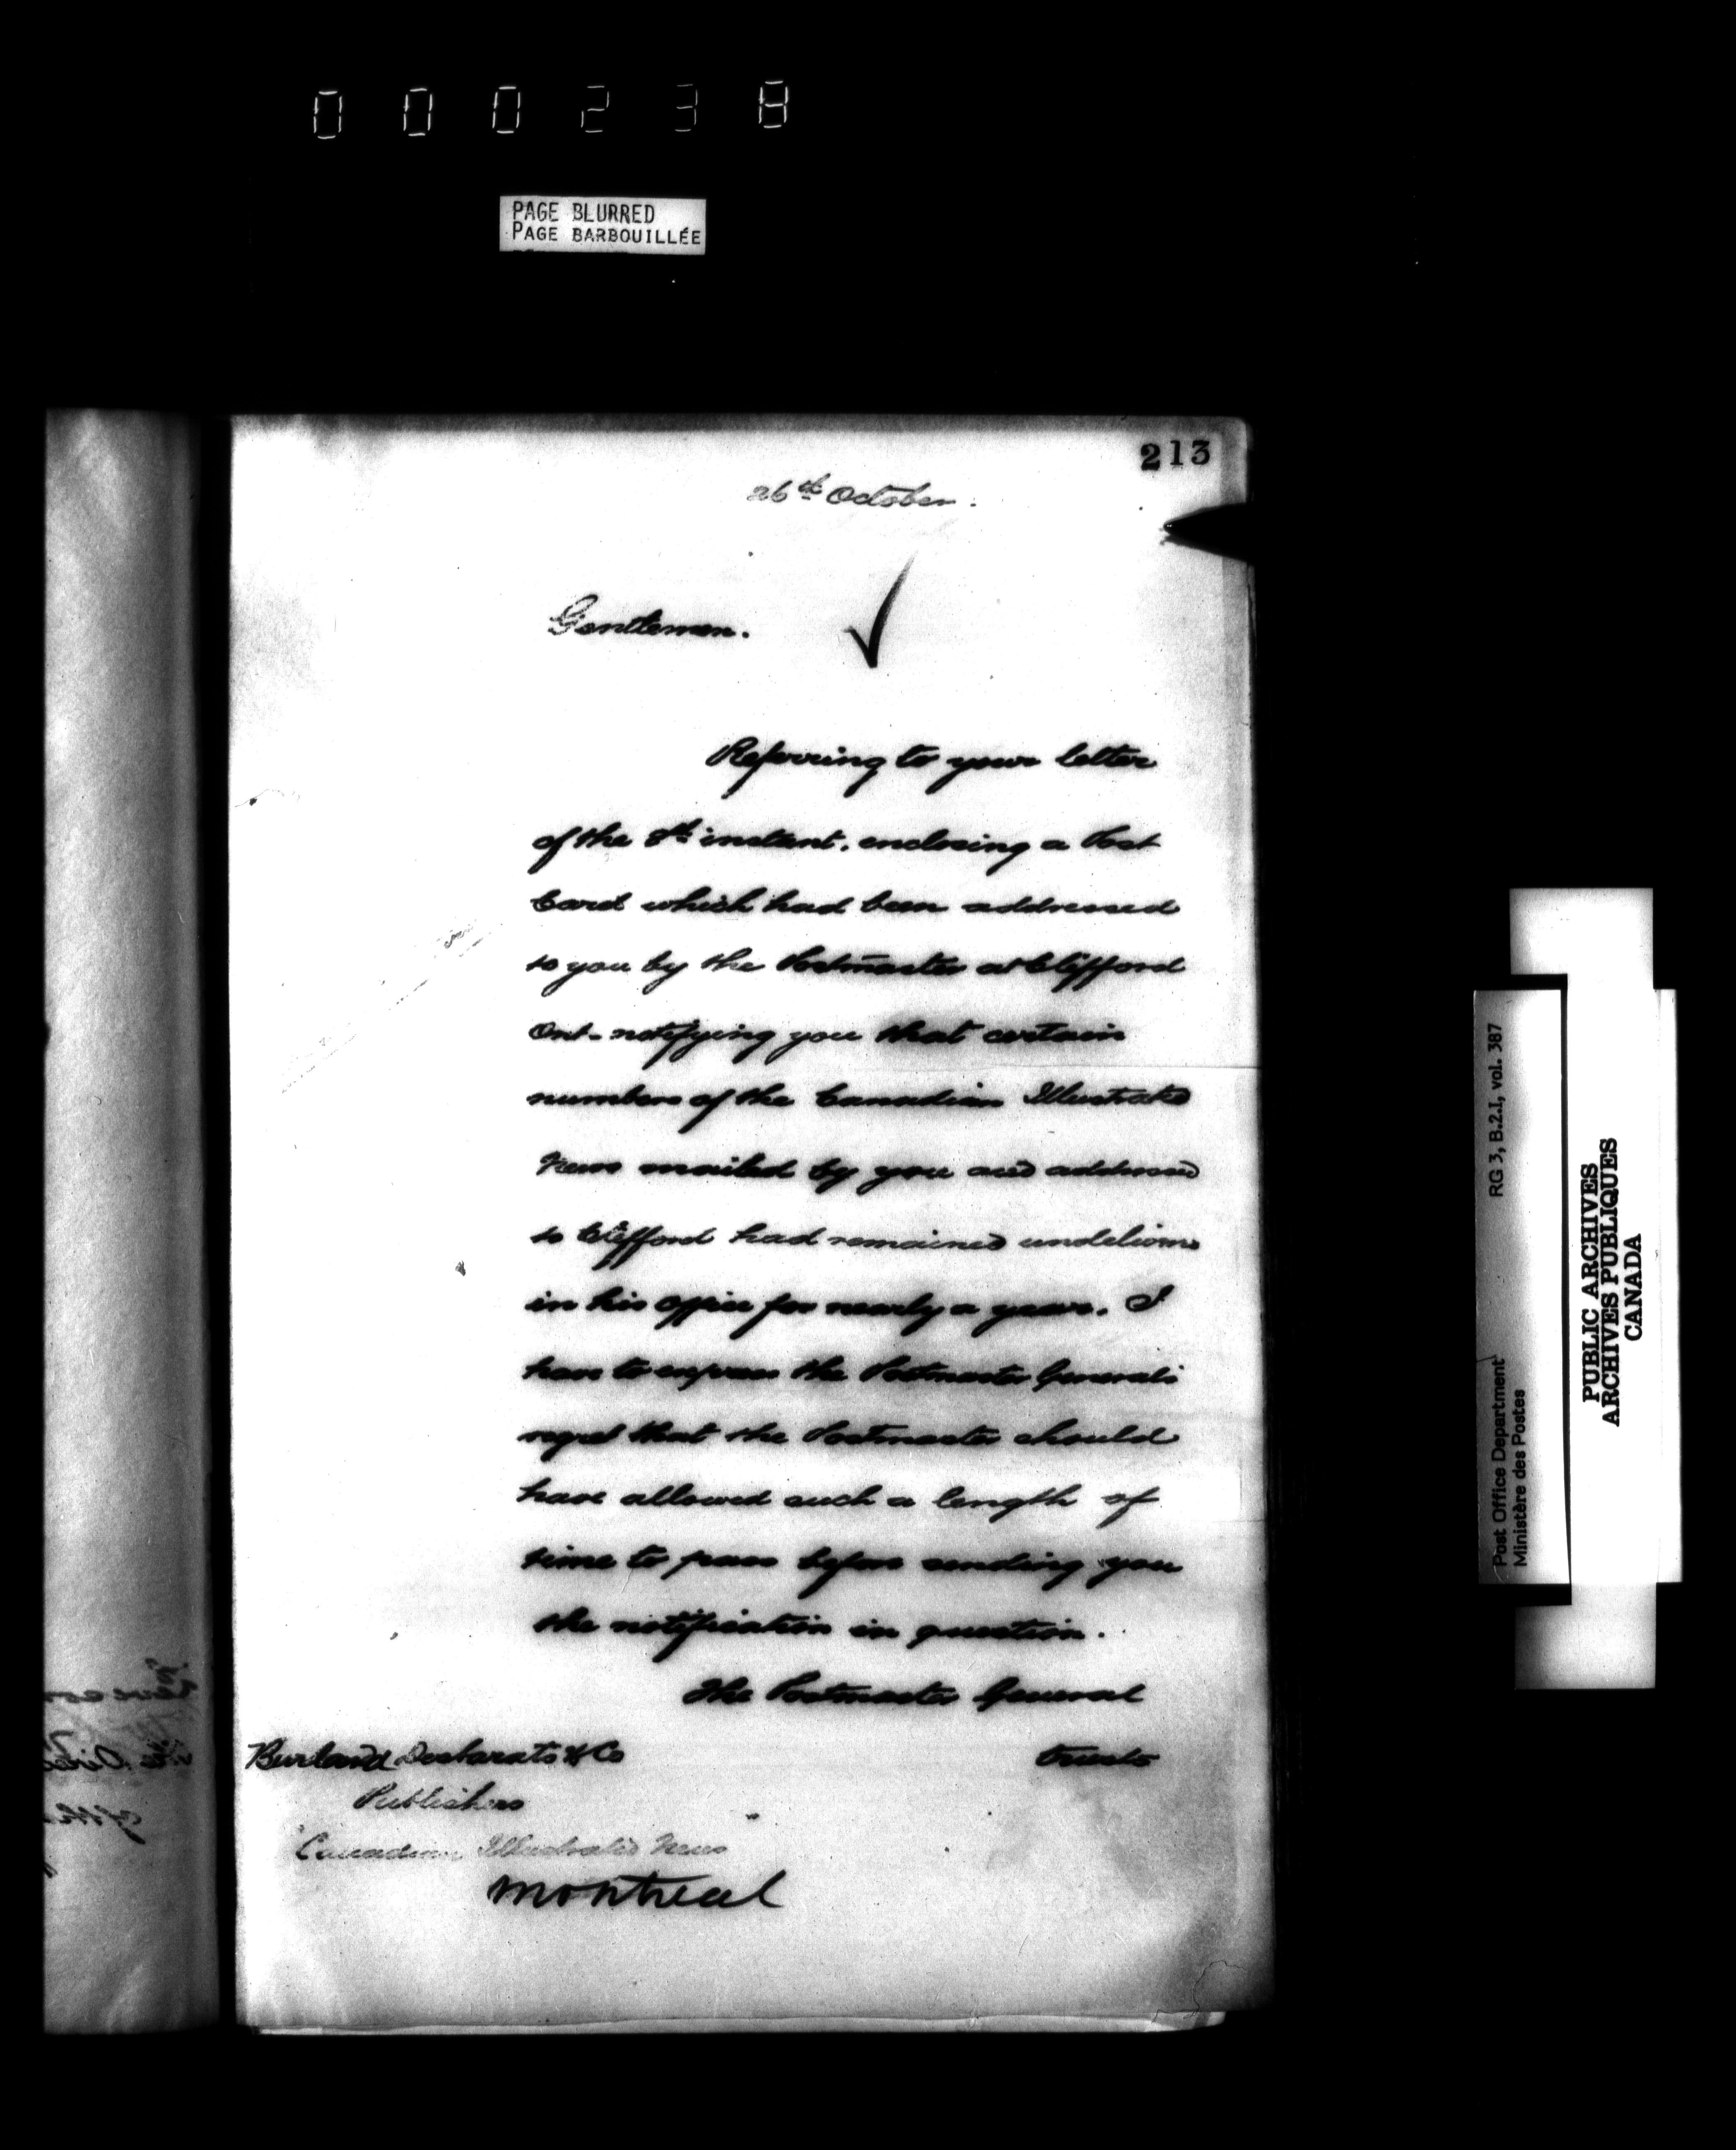 000238
PAGE BLURRED
PAGE BARBOUILLÉE
213
26th October.
Gentlemen.
Referring to your letter
of the 8th instant, enclosing a Post
Card which had been addressed
to you by the Postmaster at Clifford
Ont. notifying you that certain
numbers of the Canadian Illustrated
News mailed by you and addressed
to Clifford had remained undelivered
in his office for nearly a year. I
have to express the Postmaster General's
regret that the Postmaster should
have allowed such a length of
time to pass before sending you
the notification in question.
The Postmaster General
trusts
Burland Desbarats & Co
Publishers
"Canadian Illustrated News"
Montreal
RG 3, B.2.1, vol. 387
Post Office Department
Ministère des Postes
PUBLIC ARCHIVES
ARCHIVES PUBLIQUES
CANADA